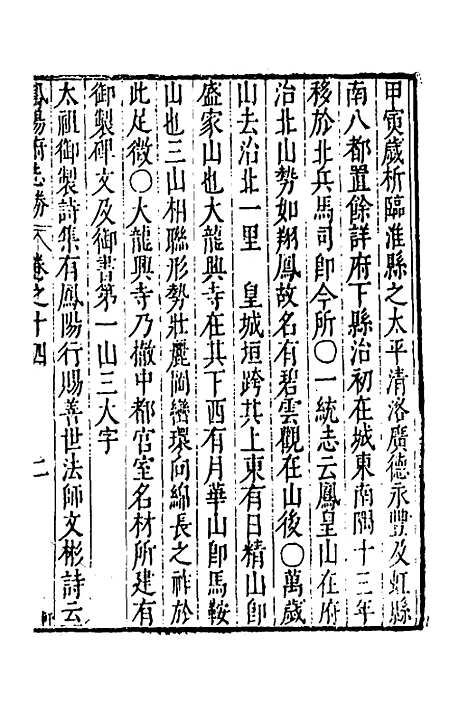 甲寅歲析臨淮縣之太平清洛廣德永豐及虹縣
南八都置餘詳府下縣治初在城東南隅十三年
移於北兵馬司卽今所〇一統志云鳳皇山在府
治北山勢如翔鳳故名有碧雲觀在山後〇萬歲
山去治北一里　皇城垣跨其上東有日精山卽
盛家山也大龍興寺在其下西有月華山卽馬鞍
山也三山相聯形勢壯麗岡巒環向綿長之祚於
此足徵〇大龍興寺乃撤中都宮室名材所建有
御製碑文及御書第一山三大字
太祖御製詩集有鳳陽行賜善世法師文彬詩云
鳳陽府志勝　卷之十四　二